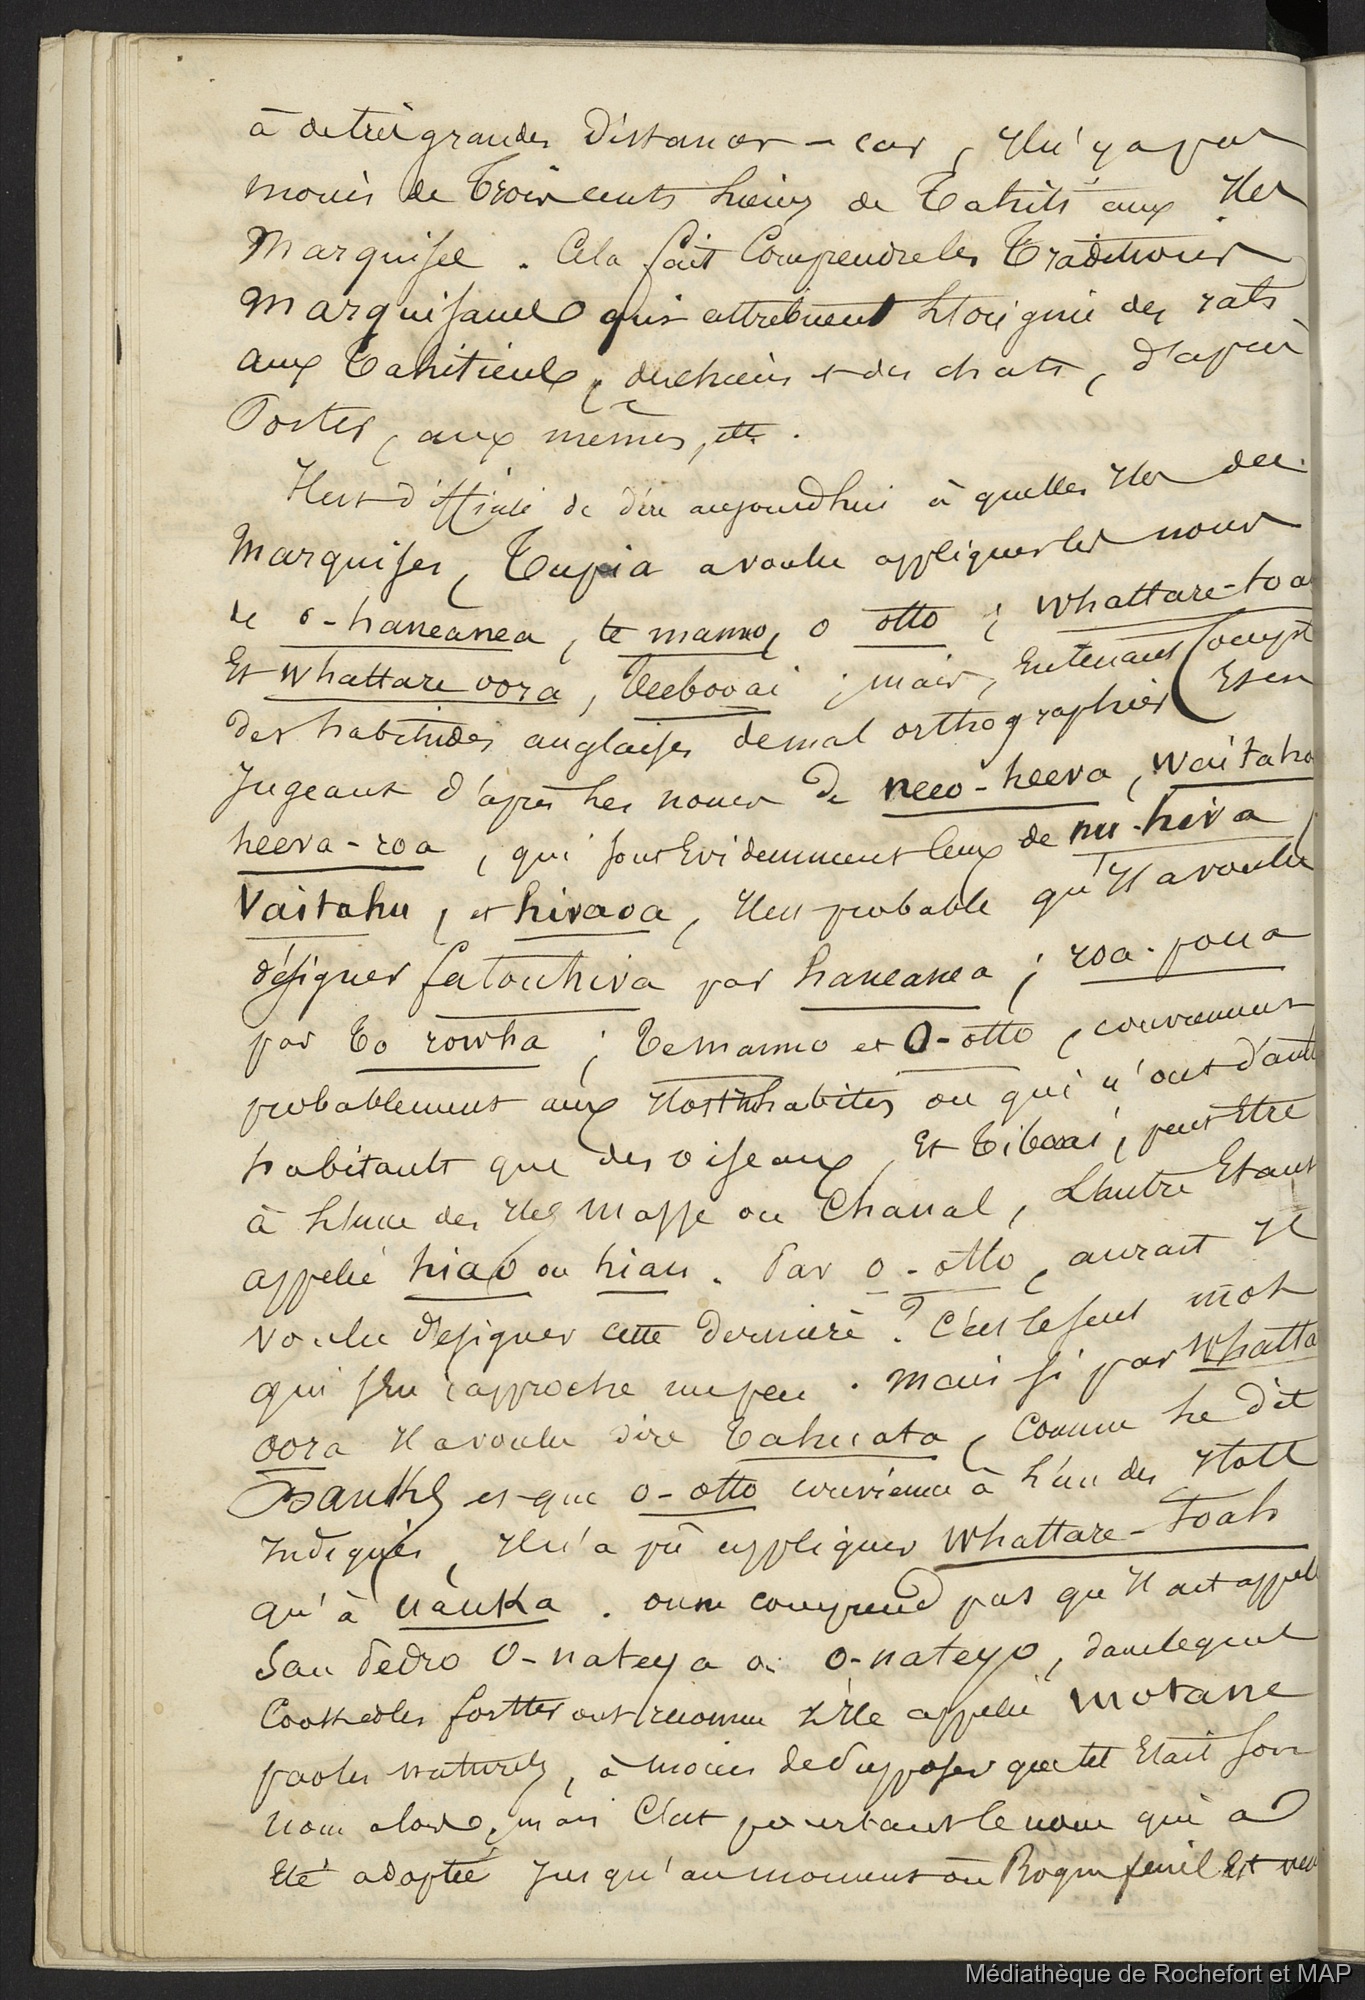 à de très grandes distances - car, il n'y a pas
moins de trois cents lieues de Tahiti aux Iles
Marquises. Cela fait comprendre les Traditions
Marquisanes qui attribuent l'origine des rats
aux Tahitiens, des chiens et des chats, d'après
Porter, aux mêmes, etc.
Il est difficile de dire aujourd'hui à quelles Iles des
Marquises, Tupia a voulu appliquer les noms
de o-haneanea, te manno, o otto; whattare-toa
Et whattare oora, Teebooai; mais, en tenant compte
des habitudes anglaises de mal orthographier Et en
Jugeant d'après les noms de neeo-heeva, waitaho
heeva-roa, qui sont Evidemment ceux de nu-hiva
Vaitahu, et hivaoa, Il est probable qu'Il a voulu
désigner fatouhiva par haneanea; roa-poua
par To rowha; Temanno et O-otto, conviennent
probablement aux Ilots inhabités ou qui n'ont d'autres
habitants que des oiseaux, Et Tiboai, peut Etre
à l'une des Iles Masse ou Chanal, L'autre Etant
appelée hiao ou hiau. Par o-otto, aurait Il
voulu désigner cette dernière? C'est le seul mot
qui s'en rapproche un peu. Mais si par Whatta
oora Il a voulu dire Tahuata, Comme le dit
Banks et que o-otto convienne à l'un des Ilots
Indiqués, Il n'a pû appliquer Whattare-Toah
qu'à nauka. on ne comprend pas qu'Il ait appelé
San Pedro O-nateya ou o-nateyo, dans lequel
Cook et les forster ont reconnu L'Ile appelée Motane
par les naturels, à moins de supposer que tel Etait son
nom alors, mais C'est pourtant le nom qui a
Eté adopté Jusqu'au moment où Roquefeuil Est venu
Médiathèque de Rochefort et MAP